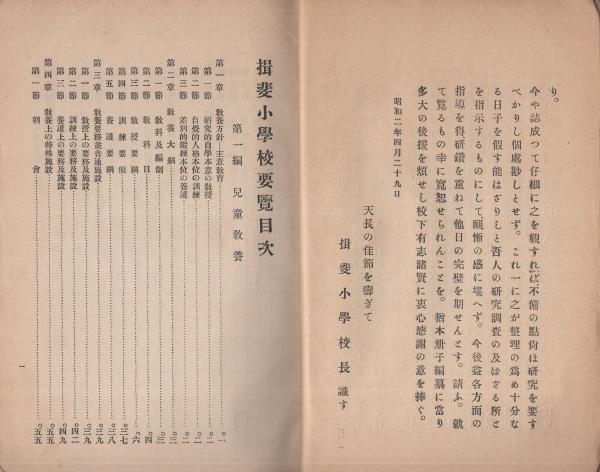 り。
今や認成つて仔細に之を觀すれば不備の點尙ほ研究を要す
べかりし個處尠しとせず。これ一に之が整理の爲め十分な
る日子を假す能はざりしと吾人の研究調査の及ばざる所と
を指示するものにして慚慚の感に堪へず。今後益各方面の
指導を得、研鑽を重ねて他日の完璧を期せんとす。請ふ。
て覽るもの幸に寬恕せられんことを。猶本册子編纂に當り
多大の後援を煩せし校下有志諸賢に衷心感謝の意を捧ぐ。
昭和二年四月二十九日
天長の佳節を壽ぎて
揖斐小學校長 識す
揖斐小學校要覽目次
第一編 兒童教養
第一章 敎養方針―主意敎育……〇一
第一節 硏究的自學本意の敎授……〇二
第二節 自覺的人格本位の訓練……〇二
第三節 差別的鍛練本位の養護……〇二
第二章 敎養大綱……〇三
第一節 敎科及編制……〇三
第二節 敎科目……〇四
第三節 敎授要綱……〇六
第四節 訓練要領……三七
第五節 養護要綱……三八
第三章 敎養要務並普通施設……三九
第一節 敎授上の要務及施設……三九
第二節 訓練上の要務及施設……四二
第三節 養護上の要務及施設……四九
第四章 敎養上の特殊施設……五五
第一節 朝會……五五
一